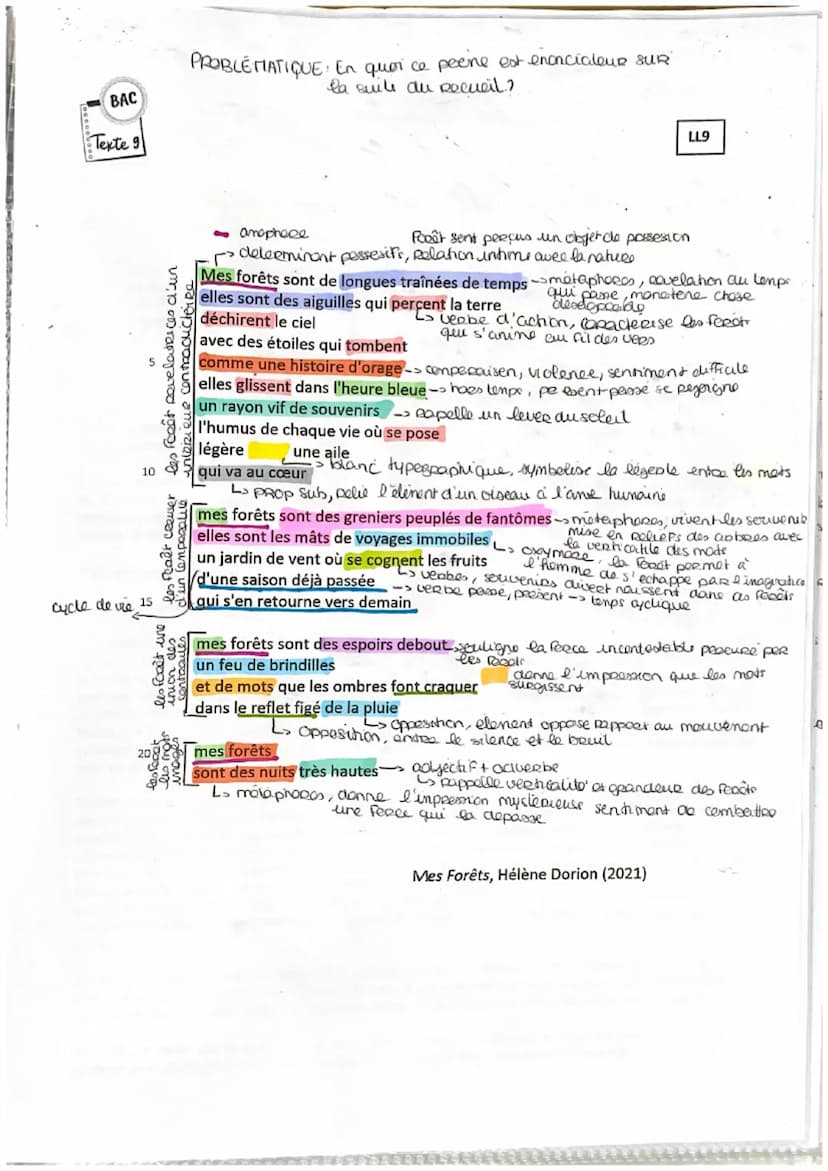 PROBLÉMATIQUE : En quoi ce poème est énonciateur sur
la suite du recueil ?
BAC
Texte 9
LL9
anaphore
Forêt sent perçus un objet de possesion
déterminant possesifs, relation intime avec la nature
les Forêt révélatrices d'un
intérieur contradictoire
Mes forêts sont de longues traînées de temps
métaphores, révélation au temps
qui passe, monotone chose
elles sont des aiguilles qui percent la terre
déchirent le ciel
verbe d'action, caractérise les Forêt
qui s'anime au fil des vers
avec des étoiles qui tombent
5
comme une histoire d'orage
comparaison, violence, sentiment difficile
elles glissent dans l'heure bleue
hors temps, présent passé se rejoigne
un rayon vif de souvenirs
rapelle un lever du soleil
l'humus de chaque vie où se pose
légère une aile
blanc typographique, symbolise la légerte entre les mots
10
qui va au cœur
prop sub, relie l'élément d'un oiseau à l'ame humaine
mes forêts sont des greniers peuplés de fantômes
métaphores, vivent les souvenir
elles sont les mâts de voyages immobiles
mise en reliefs des arbres avec
la verticalité des mats
oxymore, la Forêt permet à
l'homme de s'échappe par l'imagination
un jardin de vent où se cognent les fruits
verbes, souvenirs naissent dans ces Forêts
d'une saison déjà passée
verbe passe, présent → temps cyclique
cycle de vie
15
qui s'en retourne vers demain
les Forêt une
union des
contraires
mes forêts sont des espoirs debout
souligne la force incontestable procuré par
les Forêt
un feu de brindilles
donne l'impression que les mots
surgissent
et de mots que les ombres font craquer
dans le reflet figé de la pluie
opposition, élement oppose rapport au mouvement
Opposition, entre le silence et le bruit
20
mes forêts
sont des nuits très hautes
adjectif + adverbe
rappelle verticalité et grandeur des Forêts
métaphores, donne l'impression mystérieuse sentiment de combattre
une Force qui la dépasse
Mes Forêts, Hélène Dorion (2021)